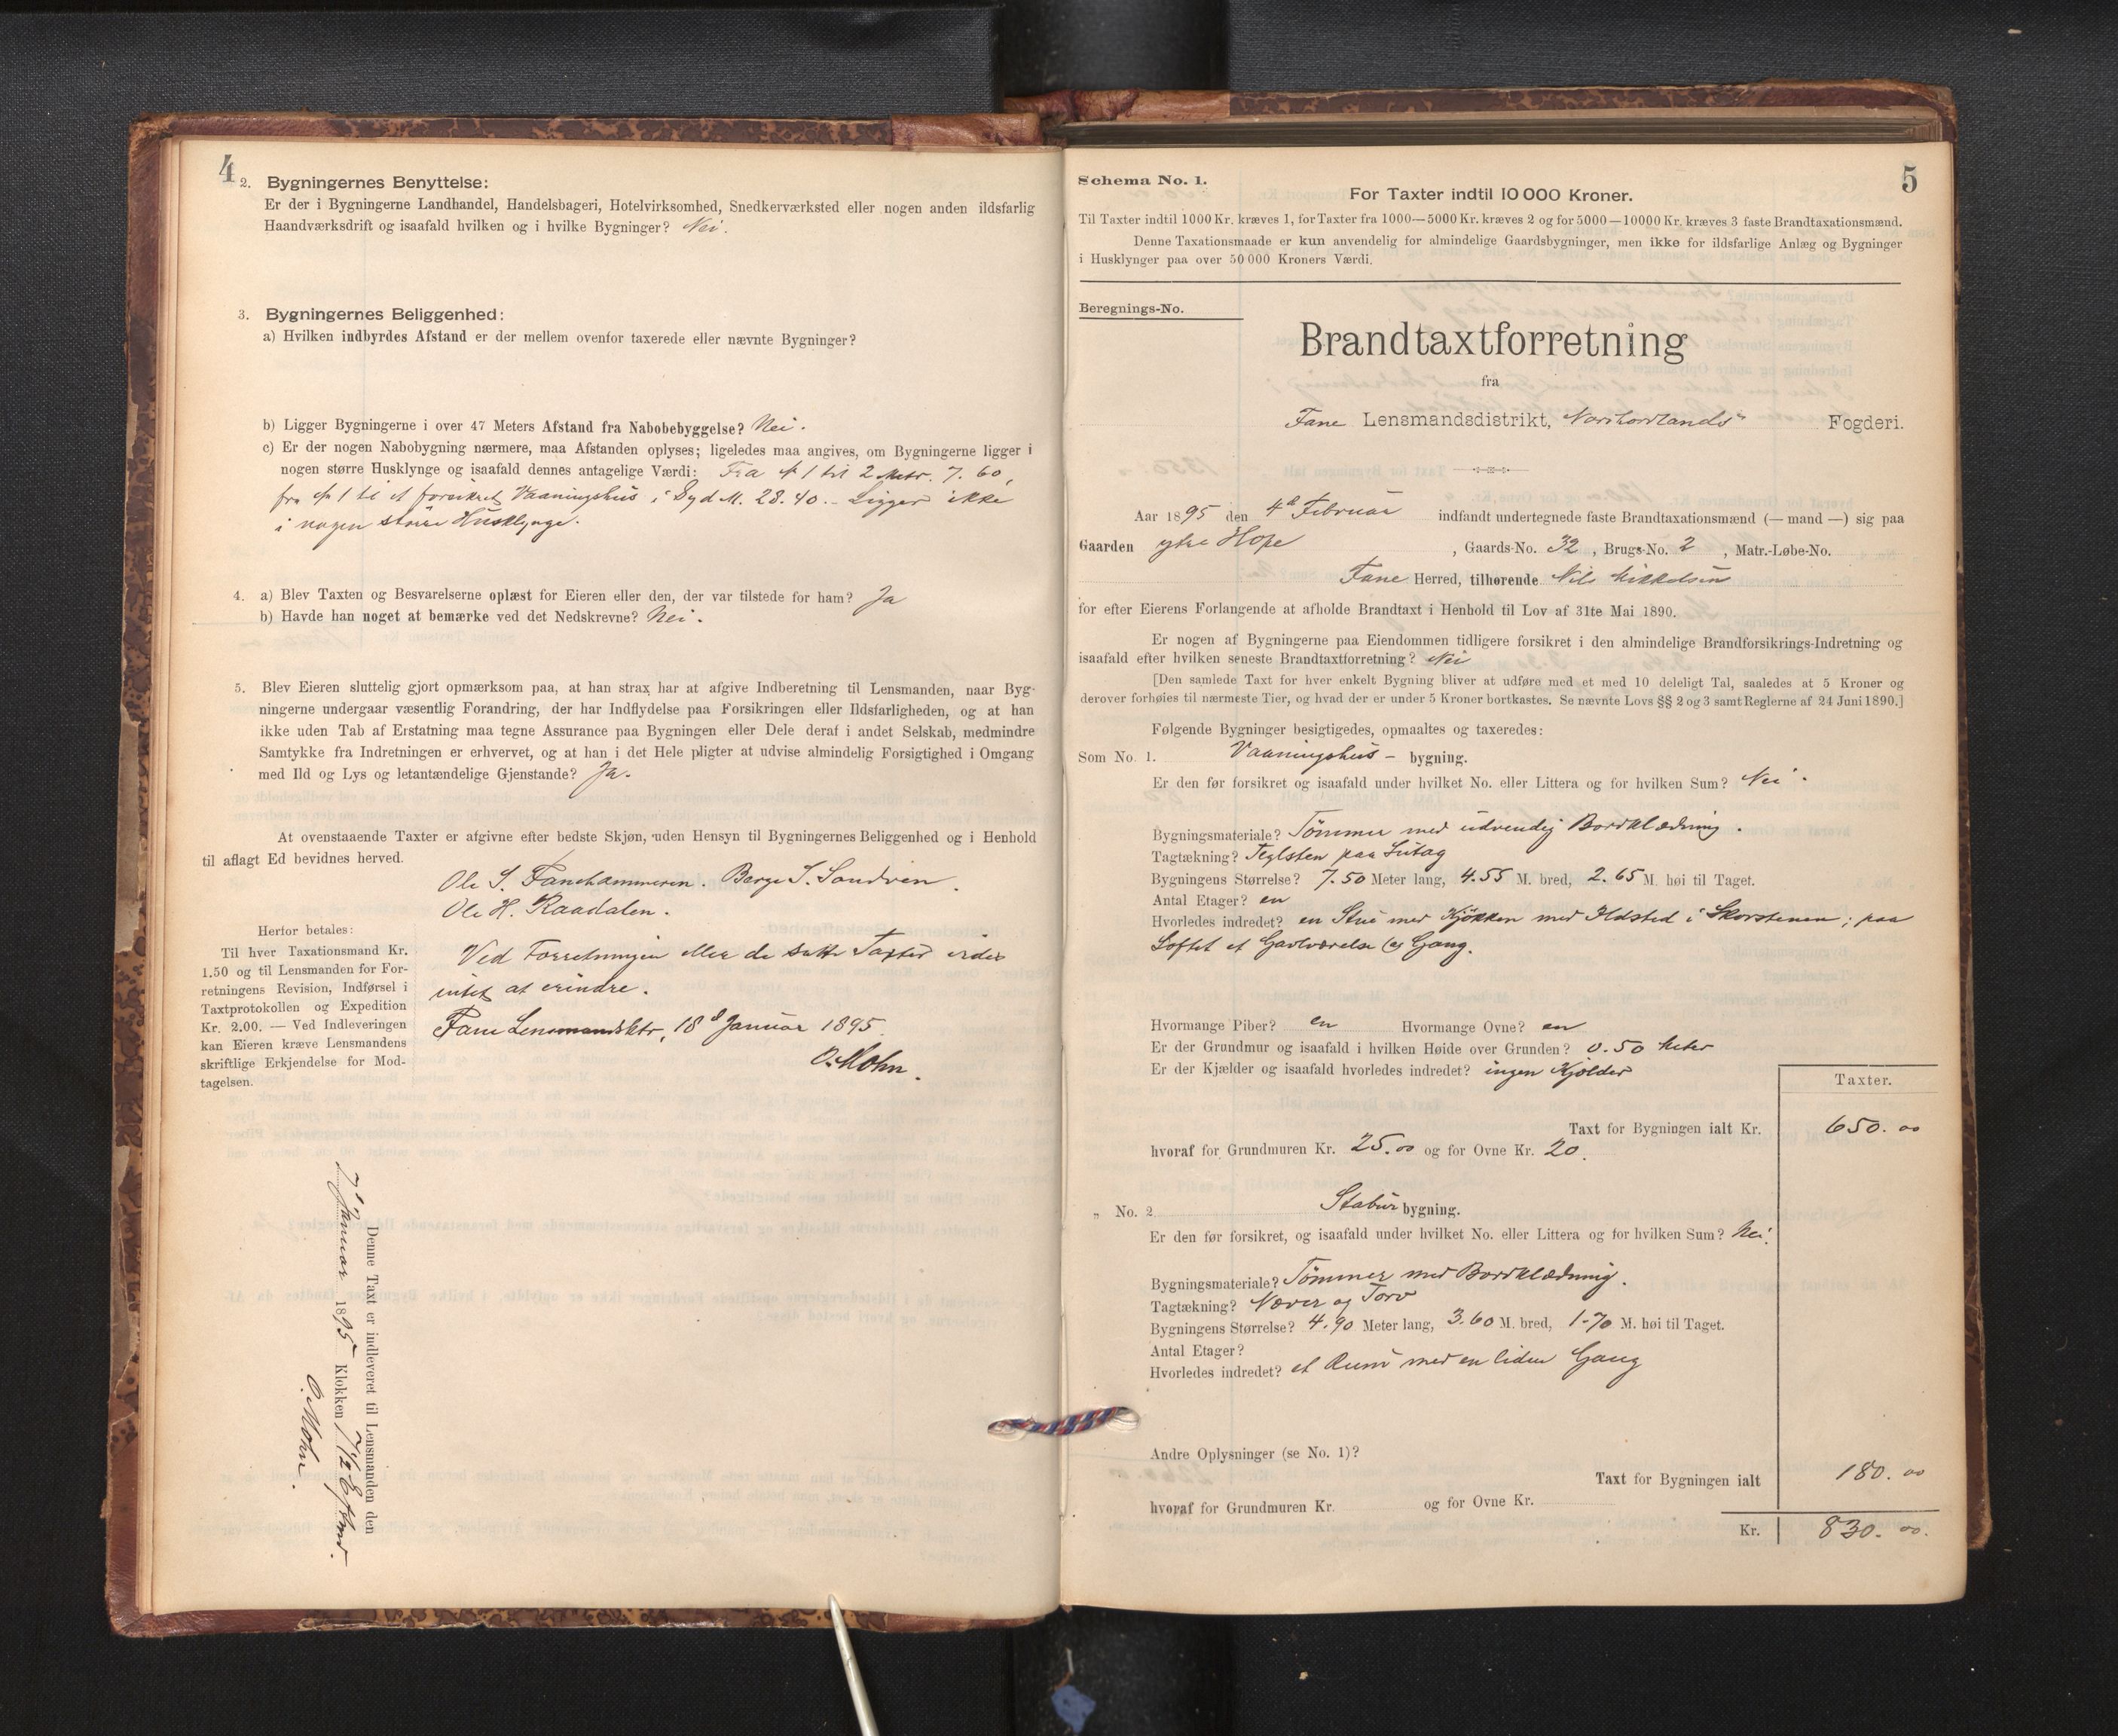 4
2. Bygningernes Benyttelse:
Er der i Bygningerne Landhandel, Handelsbageri, Hotelvirksomhed, Snedkerværksted eller nogen anden ildsfarlig
Haandværksdrift og isaafald hvilken og i hvilke Bygninger? Nei.
3. Bygningernes Beliggenhed:
a) Hvilken indbyrdes Afstand er der mellem ovenfor taxerede eller nævnte Bygninger?
b) Ligger Bygningerne i over 47 Meters Afstand fra Nabobebyggelse? Nei.
c) Er der nogen Nabobygning nærmere, maa Afstanden oplyses; ligeledes maa angives, om Bygningerne ligger i
nogen større Husklynge og isaafald dennes antagelige Værdi: Fra № 1 til 2 Metr. 7.60,
fra № 1 til et forsikret Vaaningshus i Syd M. 28.40. - Ligger ikke
i nogen større Husklynge.
4. a) Blev Taxten og Besvarelserne oplæst for Eieren eller den, der var tilstede for ham? Ja
b) Havde han noget at bemærke ved det Nedskrevne? Nei.
5. Blev Eieren sluttelig gjort opmærksom paa, at han strax har at afgive Indberetning til Lensmanden, naar Byg-
ningerne undergaar væsentlig Forandring, der har Indflydelse paa Forsikringen eller Ildsfarligheden, og at han
ikke uden Tab af Erstatning maa tegne Assurance paa Bygningen eller Dele deraf i andet Selskab, medmindre
Samtykke fra Indretningen er erhvervet, og at han i det Hele pligter at udvise almindelig Forsigtighed i Omgang
med Ild og Lys og letantændelige Gjenstande? Ja.
At ovenstaaende Taxter er afgivne efter bedste Skjøn, uden Hensyn til Bygningernes Beliggenhed og i Henhold
til aflagt Ed bevidnes herved.
Ole S. Fanehammeren. Berge S. Sandven.
Ole H. Raadalen.
Herfor betales:
Til hver Taxationsmand Kr.
1.50 og til Lensmanden for For-
retningens Revision, Indførsel i
Taxtprotokollen og Expedition
Kr. 2.00. — Ved Indleveringen
kan Eieren kræve Lensmandens
skriftlige Erkjendelse for Mod-
tagelsen.
Ved Forretningen eller de satte Taxter vides
intet at erindre.
Fane Lensmandsktr, 18d Januar 1895.
O. Mohn.
Denne Taxt er indleveret til Lensmanden den
7' Januar 1895 Klokken 7 1/2 Eftmd.
O. Mohn.
5
Schema No. 1.
For Taxter indtil 10 000 Kroner.
Til Taxter indtil 1000 Kr. kræves 1, for Taxter fra 1000—5000 Kr. kræves 2 og for 5000—10000 Kr. kræves 3 faste Brandtaxationsmænd.
Denne Taxationsmaade er kun anvendelig for almindelige Gaardsbygninger, men ikke for ildsfarlige Anlæg og Bygninger
i Husklynger paa over 50 000 Kroners Værdi.
Beregnings-No.
Brandtaxtforretning
fra
Fane Lensmandsdistrikt, Nordhordlands Fogderi.
Aar 1895 den 4d Februar indfandt undertegnede faste Brandtaxationsmænd (— mand —) sig paa
Gaarden ytre Hope, Gaards-No. 32, Brugs-No. 2, Matr.-Løbe-No.
Fane Herred, tilhørende Nils Mikkelsen
for efter Eierens Forlangende at afholde Brandtaxt i Henhold til Lov af 31te Mai 1890.
Er nogen af Bygningerne paa Eiendommen tidligere forsikret i den almindelige Brandforsikrings-Indretning og
isaafald efter hvilken seneste Brandtaxtforretning? Nei
[Den samlede Taxt for hver enkelt Bygning bliver at udføre med et med 10 deleligt Tal, saaledes at 5 Kroner og
derover forhøies til nærmeste Tier, og hvad der er under 5 Kroner bortkastes. Se nævnte Lovs §§ 2 og 3 samt Reglerne af 24 Juni 1890.]
Følgende Bygninger besigtigedes, opmaaltes og taxeredes:
Som No. 1. Vaaningshus - bygning.
Er den før forsikret og isaafald under hvilket No. eller Littera og for hvilken Sum? Nei.
Bygningsmateriale? Tömmer med udvendig Bordklædning.
Tagtækning? Teglsten paa Sutag
Bygningens Størrelse? 7.50 Meter lang, 4.55 M. bred, 2.65 M. høi til Taget.
Antal Etager? en
Hvorledes indredet? en Stue med Kjökken med Ildsted i Skorstenen; paa
Loftet et Gavlværelse og Gang.
Hvormange Piber? en Hvormange Ovne? en
Er der Grundmur og isaafald i hvilken Høide over Grunden? 0.50 Meter
Er der Kjælder og isaafald hvorledes indredet? ingen Kjælder
Taxter.
Taxt for Bygningen ialt Kr. 650.00
hvoraf for Grundmuren Kr. 25.00 og for Ovne Kr. 20.
„ No. 2. Stabur bygning.
Er den før forsikret, og isaafald under hvilket No. eller Littera og for hvilken Sum? Nei.
Bygningsmateriale? Tömmer med Bordklædning.
Tagtækning? Næver og Torv
Bygningens Størrelse? 4.90 Meter lang, 3.60 M. bred, 1-70 M. høi til Taget.
Antal Etager?
Hvorledes indredet? et Rum med en liden Gang
Andre Oplysninger (se No. 1)?
Taxt for Bygningen ialt 180.00
hvoraf for Grundmuren Kr. og for Ovne Kr.
Kr. 830.00.